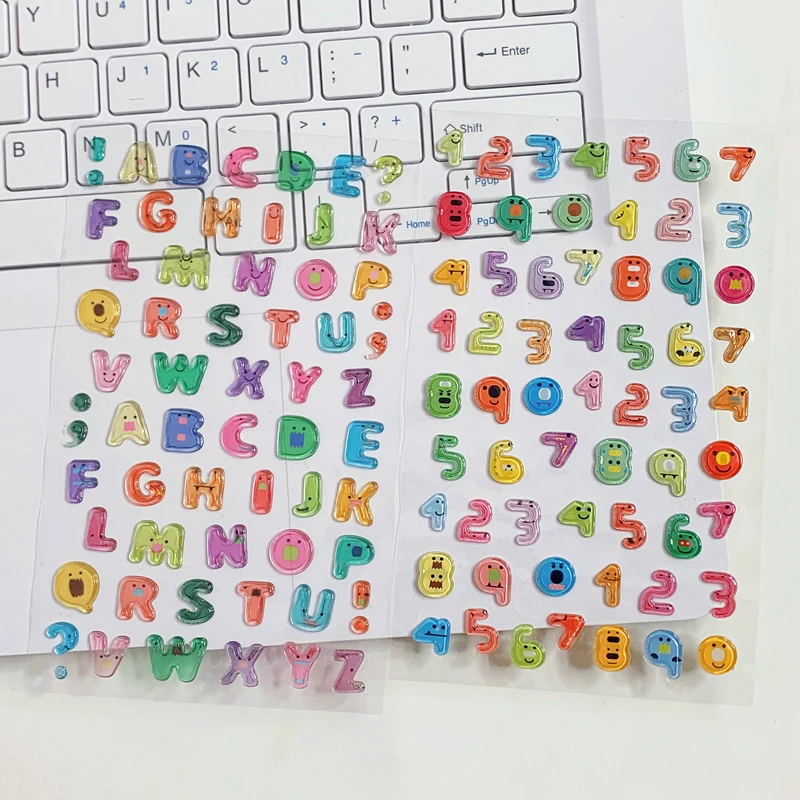 Y U 4
H J 1 K 2 L 3 : - ; " ' Enter
B N M 0 < > . ? + / Shift
PgUp
Home PgD
! A B C D E ?
F G H I J K
L M N O P
Q R S T U ;
V W X Y Z
; A B C D E
F G H I J K
L M N O P
Q R S T U !
? V W X Y Z
1 2 3 4 5 6 7
8 9 0 1 2 3
4 5 6 7 8 9 0
1 2 3 4 5 6 7
8 9 0 1 2 3 4
5 6 7 8 9 0
1 2 3 4 5 6 7
8 9 0 1 2 3
4 5 6 7 8 9 0